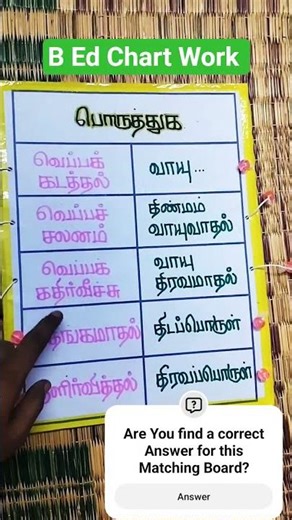 B Ed Chart Work
பொருத்துக
வெப்பக்
கடத்தல்
வாயு...
வெப்பச்
சலனம்
திண்மம்
வாயுவாதல்
வெப்பக்
கதிர்வீச்சு
வாயு
திரவமாதல்
திடப்பொருள்
திரவப்பொருள்
Are You find a correct
Answer for this
Matching Board?
Answer